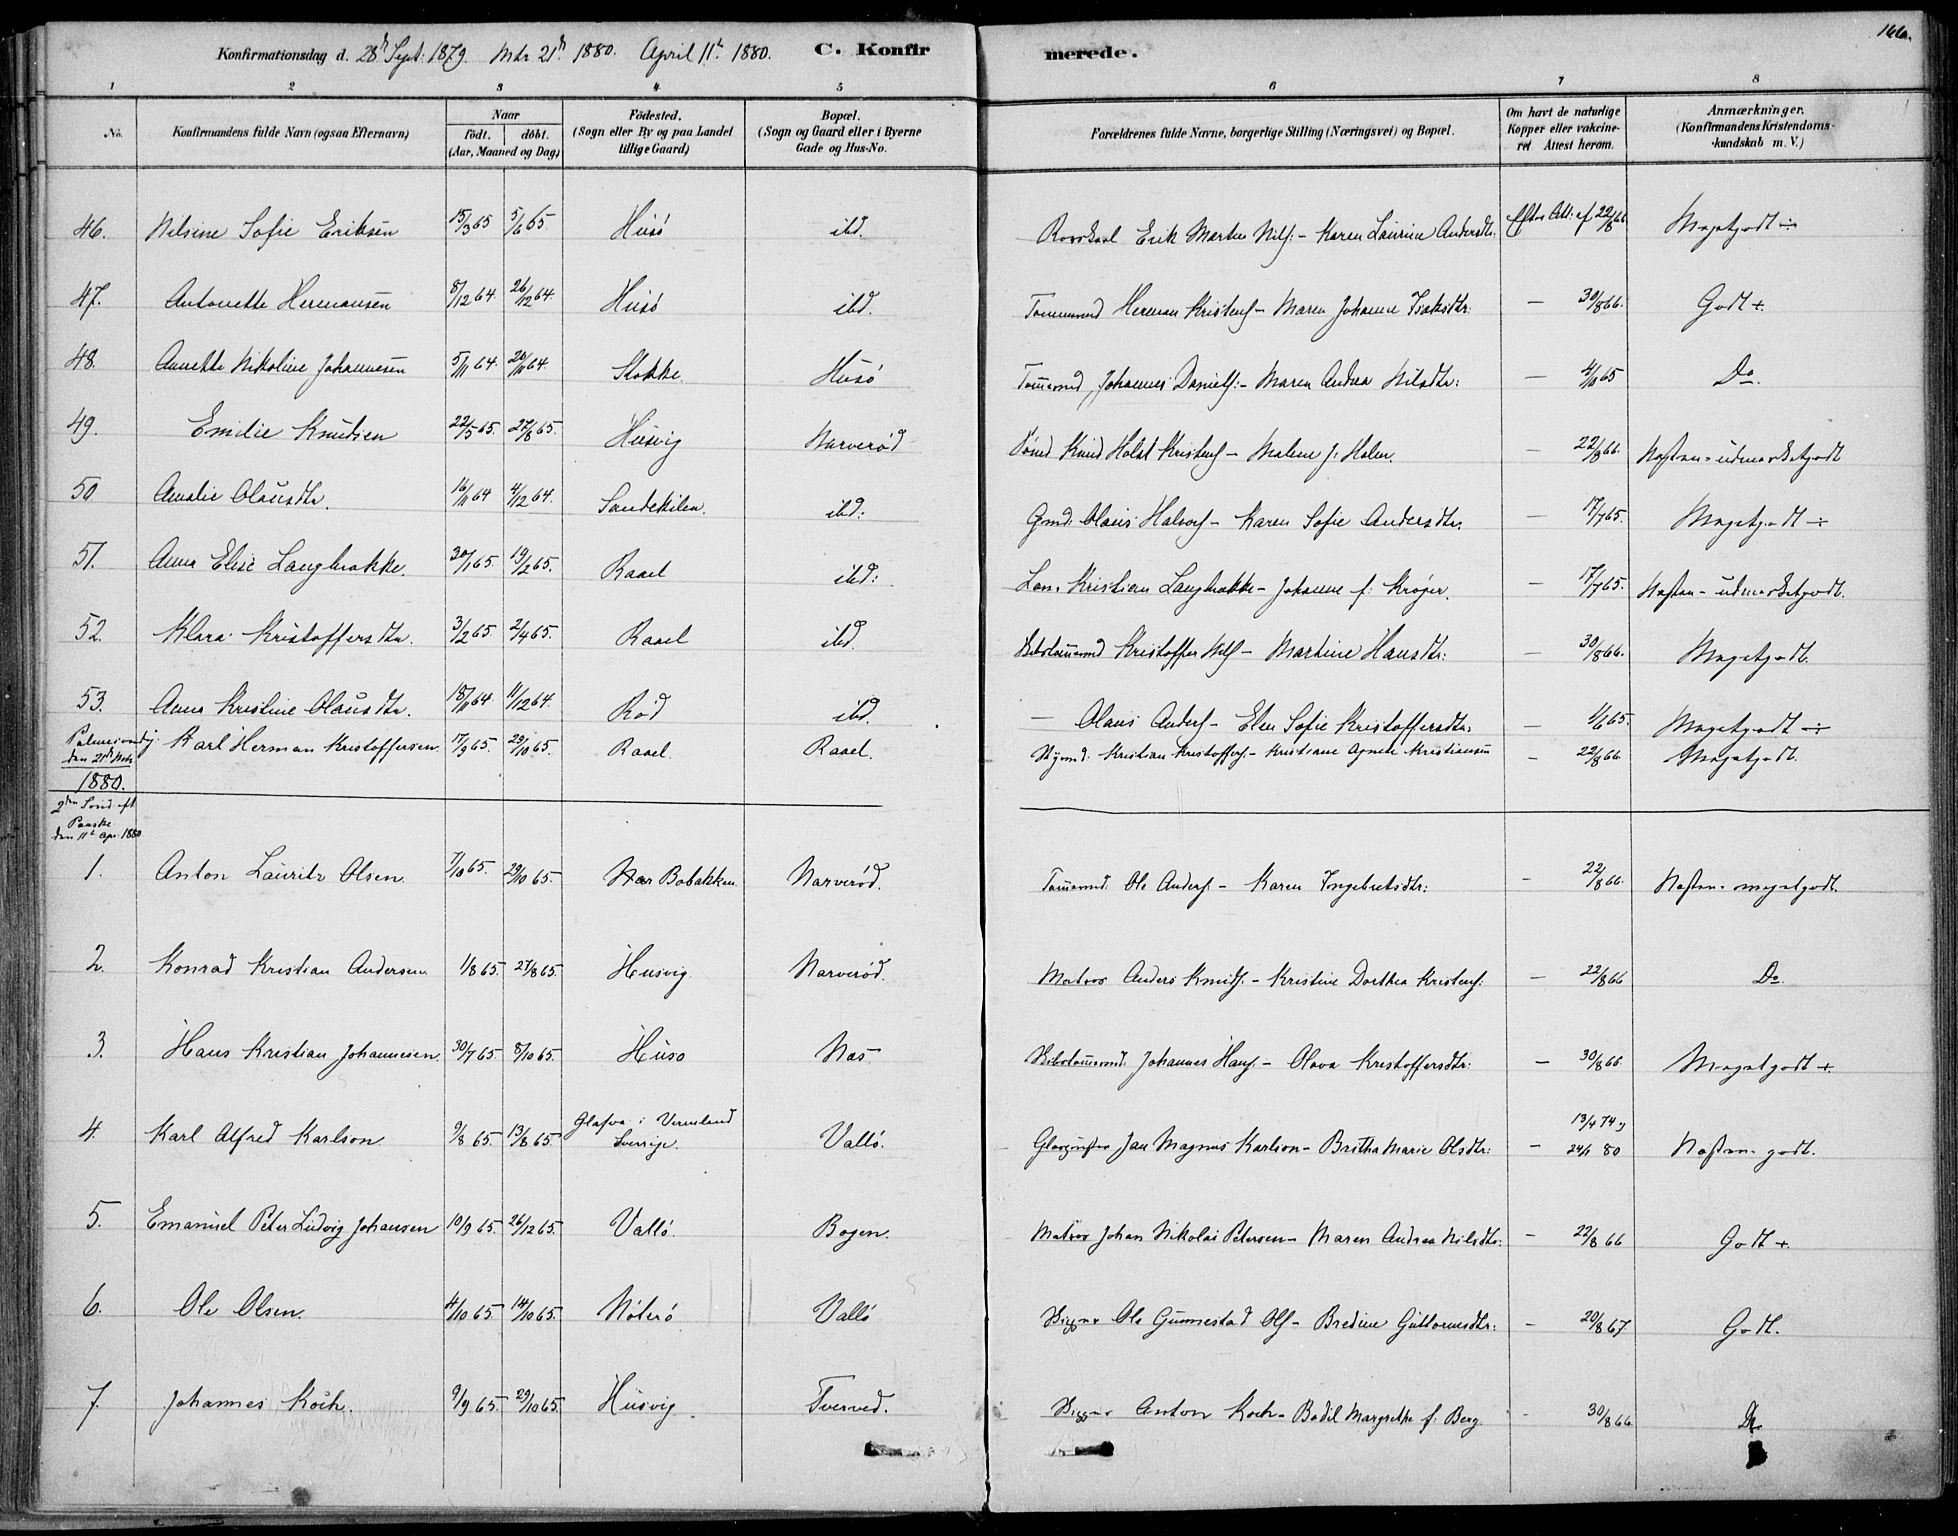 166.
Konfirmationsdag d. 28de Sept: 1879. Mts 21de 1880. April 11te 1880. C. Konfirmerede.
1 2 3 4 5 6 7 8
No. Konfirmandens fulde Navn (ogsaa Efternavn) Naar født. døbt. (Aar, Maaned og Dag) Fødested. (Sogn eller By og paa Landet tillige Gaard) Bopæl. (Sogn og Gaard eller i Byerne Gade og Hus-No. Forældrenes fulde Navne, borgerlige Stilling (Næringsvei) og Bopæl. Om havt de naturlige Kopper eller vakcineret Attest herom. Anmærkninger. (Konfirmandens Kristendomskundskab m. V.)
46. Nilsine Sofie Eriksen 15/3 65 5/6 65. Husø ibd. Erik Martin Nils: - Karen Laurine Andersdtr: Att: af 22/8 66 Megetgodt ÷
47. Antonette Hermansen 8/12 64. 26/12 64. Husø ibd. Tømmermd Herman Kristens - Maren Johanne Isaksdtr: — 30/8 66. Godt +.
48. Annette Nikoline Johannesen 5/11 64. 20/11 64. Stokke. Husø Tømmermd Johannes Daniels: - Maren Andrea Nilsdtr: — 4/10 65 Do.
49. Emilie Knudsen 22/5 65. 27/8 65. Husvig Narverød Knud Holst Kristens - Malene f: Holm. — 22/8 66. Næsten - udmærketgodt
50 Amalie Olausdtr. 16/11 64 4/12 64. Sandekilen. ibd: Gmd: Olaus Halvors - Karen Sofie Andersdtr. — 17/7 65. Megetgodt ÷
51. Anna Elise Langbrakke. 30/1 65. 19/2 65. Raael ibd: Kristian Langbrakke - Johanne f: Krøger. — 17/7 65. Næsten - udmærketgodt.
52. Klara Kristoffersdtr. 3/2 65. 2/4 65. Raael ibd. Skibstømmermd Kristoffer Nils - Martine Hansdtr: — 30/8 66. Megetgodt.
53. Anna Kristine Olausdtr. 18/11 64 11/12 64. Rød ibd. — Olaus Anders - Elen Sofie Kristoffersdtr: — 65. Megetgodt ÷
Palmesøndg den 21de Mts 1880. Karl Herman Kristoffersen 17/9 65. 29/10 65. Raael. Raael. Kristian Kristoffers - Kristiane Agnete Kristiansen — 22/8 66. Megetgodt.
2den Sønd. eft. Paaske den 11te Apr. 1880
1. Anton Lauritz Olsen. 7/10 65. 29/10 65. Nær Bobakken. Narverød. Tømmermd: Ole Anders: - Karen Ingebretsdtr: — 22/8 66. Næsten - megetgodt.
2. Konrad Kristian Andersen. 1/8 65. 27/8 65. Husvig. Narverød. Matros Anders Knuds: - Kristine Dorthea Kristens: — 22/8 66 Do.
3. Hans Kristian Johannesen. 30/7 65. 8/10 65. Husø Næs Skibstømmermd: Johannes Hans: - Olava Kristoffersdtr: — 30/8 66 Megetgodt +.
4. Karl Alfred Karlson 9/8 65. 13/8 65. Glafva i Vermland Sverrige. Vallø. Jan Magnus Karlson - Britha Marie Olsdtr: — 13/4 74 24/1 80 Næsten - godt.
5. Emanuel Peter Ludvig Johansen 10/9 65. 26/12 65. Vallø. Bogen. Matros Johan Nikolai Petersen - Maren Andrea Nilsdtr: — 22/8 66 Godt +.
6. Ole Olsen. 4/10 65. 14/10 65. Nøterø Vallø Ole Gunnestad Ols - Bredine Guttormsdtr: — 20/8 67 Godt.
7. Johannes Koch. 9/9 65. 29/10 65. Husvig Tverved. Anton Koch - Bodil Margrethe f: Berg. - 30/8 66. Do.